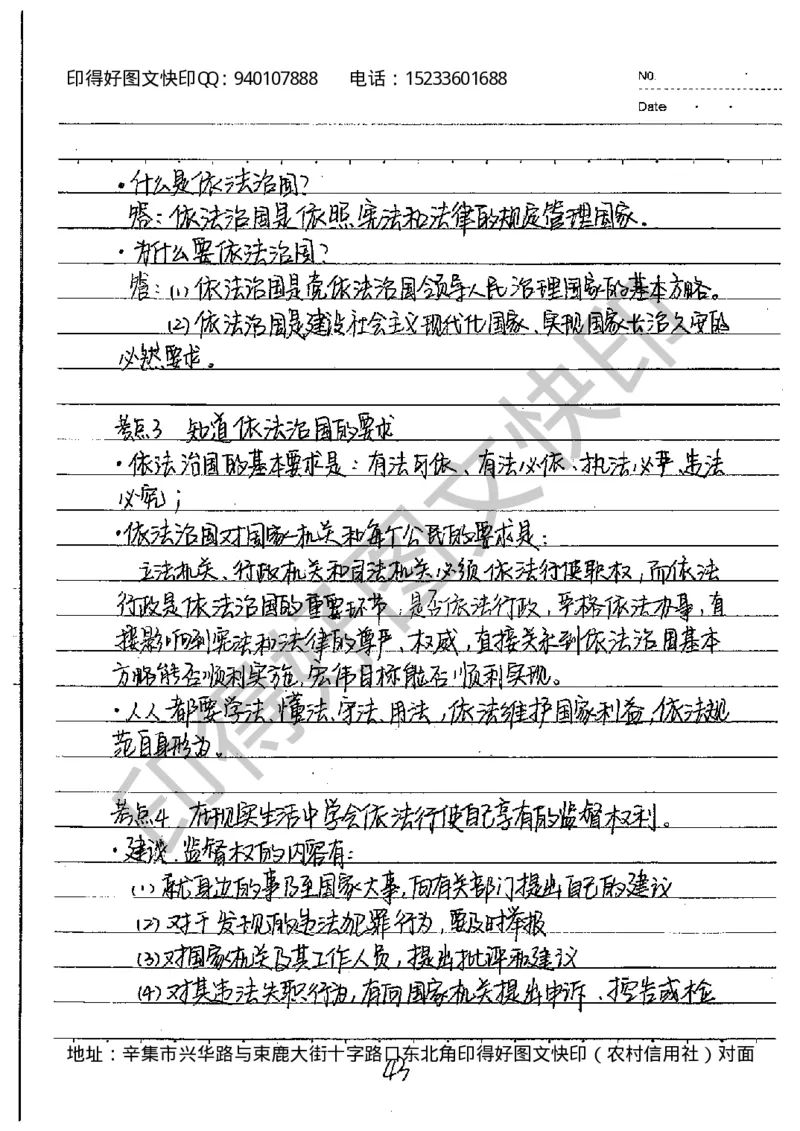 印得好图文快印QQ：940107888 电话：15233601688
No.
Date
·什么是依法治国？
答：依法治国是依照宪法和法律的规定管理国家。
·为什么要依法治国？
答：(1)依法治国是党依法治国领导人民治理国家的基本方略。
(2)依法治国是建设社会主义现代化国家、实现国家长治久安的
必然要求。
考点3 知道依法治国的要求
·依法治国的基本要求是：有法可依、有法必依、执法必严、违法
必究；
·依法治国对国家机关和每个公民的要求是：
立法机关、行政机关和司法机关必须依法行使职权，而依法
行政是依法治国的重要环节，是否依法行政，严格依法办事，直
接影响到宪法和法律的尊严、权威，直接关系到依法治国基本
方略能否顺利实施，宏伟目标能否顺利实现。
·人人都要学法、懂法、守法、用法，依法维护国家利益，依法规
范自身形为。
考点4 在现实生活中学会依法行使自己享有的监督权利。
·建议、监督权的内容有：
(1)就身边的事乃至国家大事，向有关部门提出自己的建议
(2)对于发现的违法犯罪行为，要及时举报
(3)对国家机关及其工作人员，提出批评和建议
(4)对其违法失职行为，有向国家机关提出申诉、控告或检
地址：辛集市兴华路与束鹿大街十字路口东北角印得好图文快印（农村信用社）对面
43
印得好图文快印